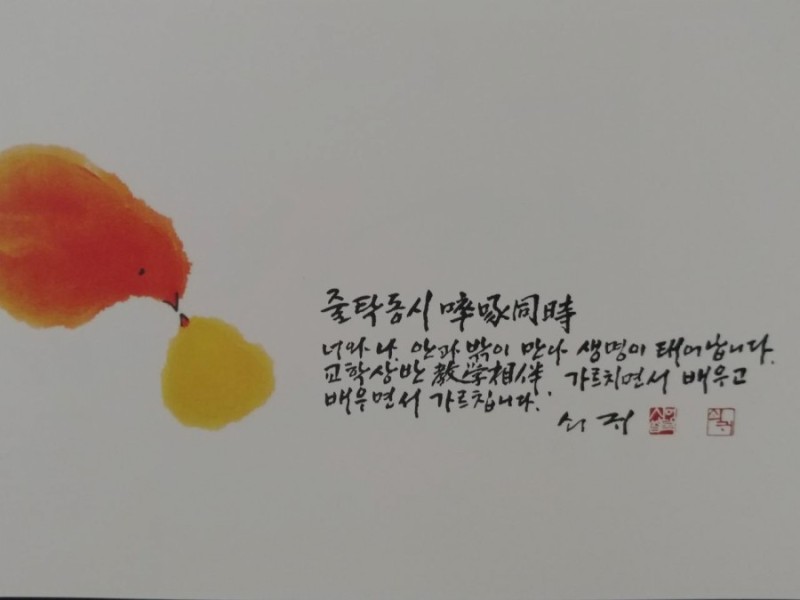 줄탁동시 啐啄同時
너와 나, 안과 밖이 만나 생명이 태어납니다.
교학상반 敎学相伴, 가르치면서 배우고
배우면서 가르칩니다.